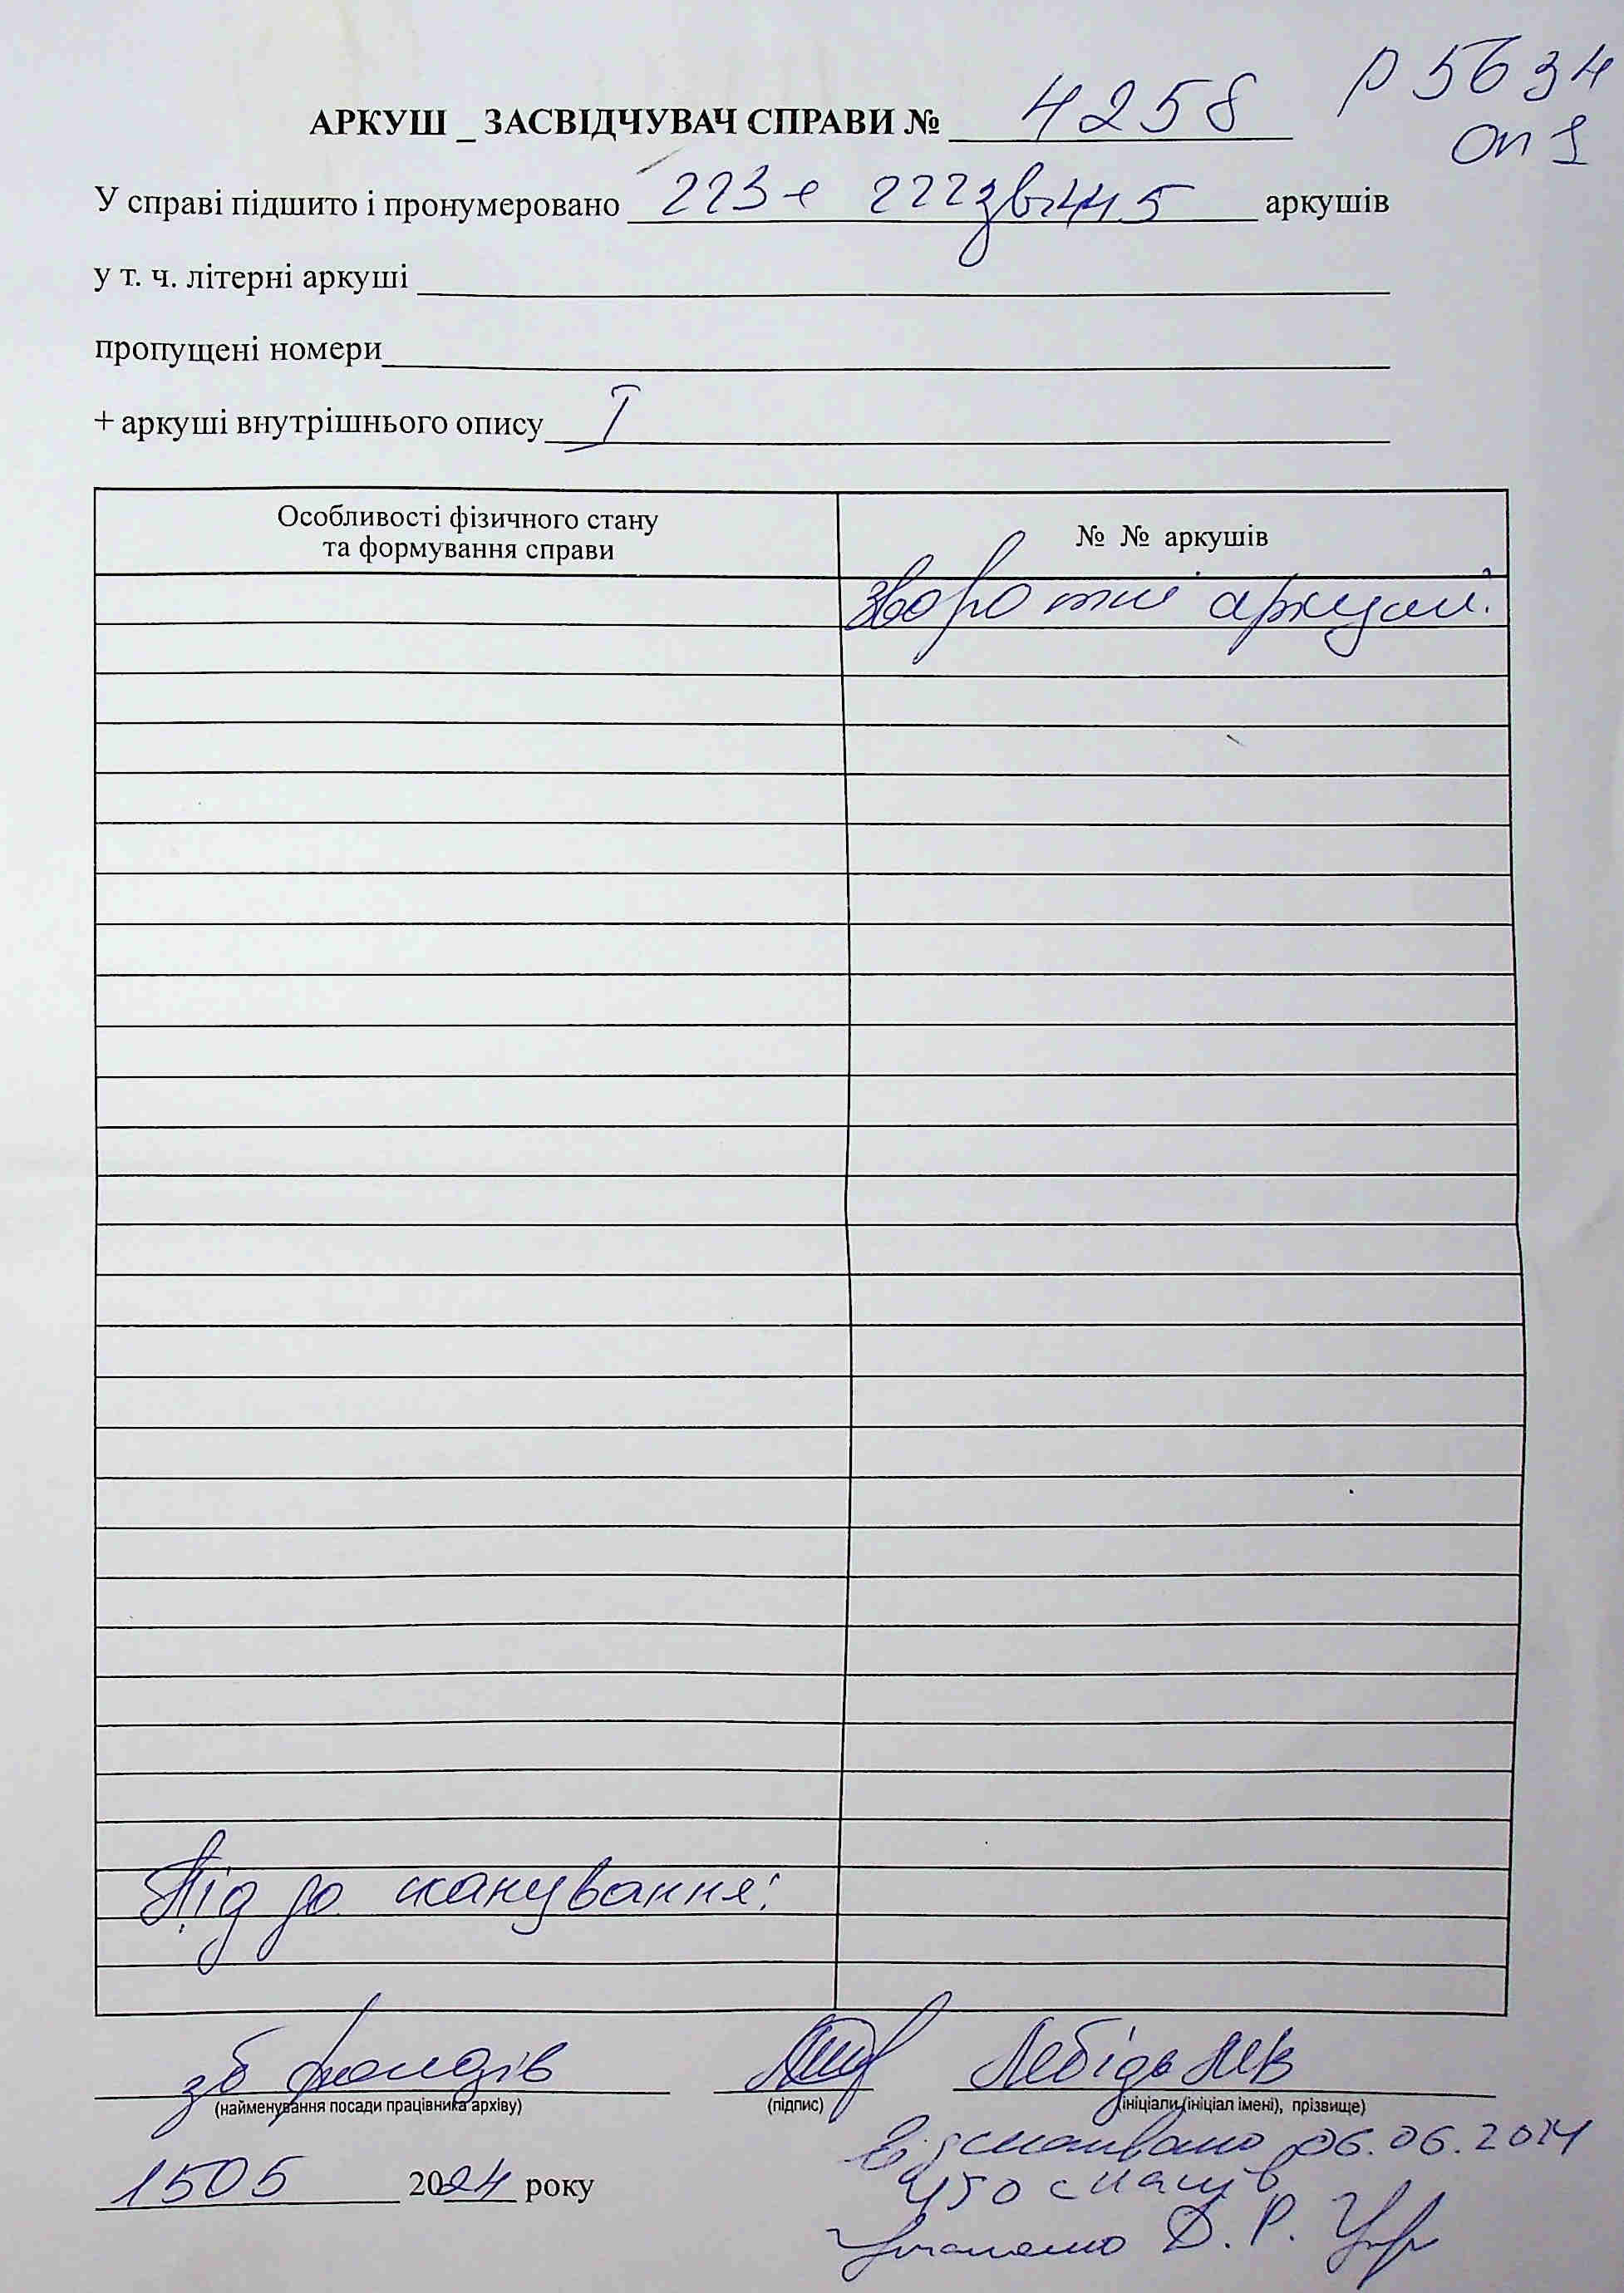 Р 5634
оп 1
АРКУШ _ ЗАСВІДЧУВАЧ СПРАВИ № 4258
У справі підшито і пронумеровано 223 + 222зв 445 аркушів
у т. ч. літерні аркуші
пропущені номери
+ аркуші внутрішнього опису I
Особливості фізичного стану
та формування справи
№ № аркушів
зворотні аркуші.
Під до сканування:
зб фондів Лебідь
(найменування посади працівника архіву) (підпис) (ініціали (ініціал імені), прізвище)
Відскановано 06.06.2024
1505 2024 року
450 сканів
Д. Р.